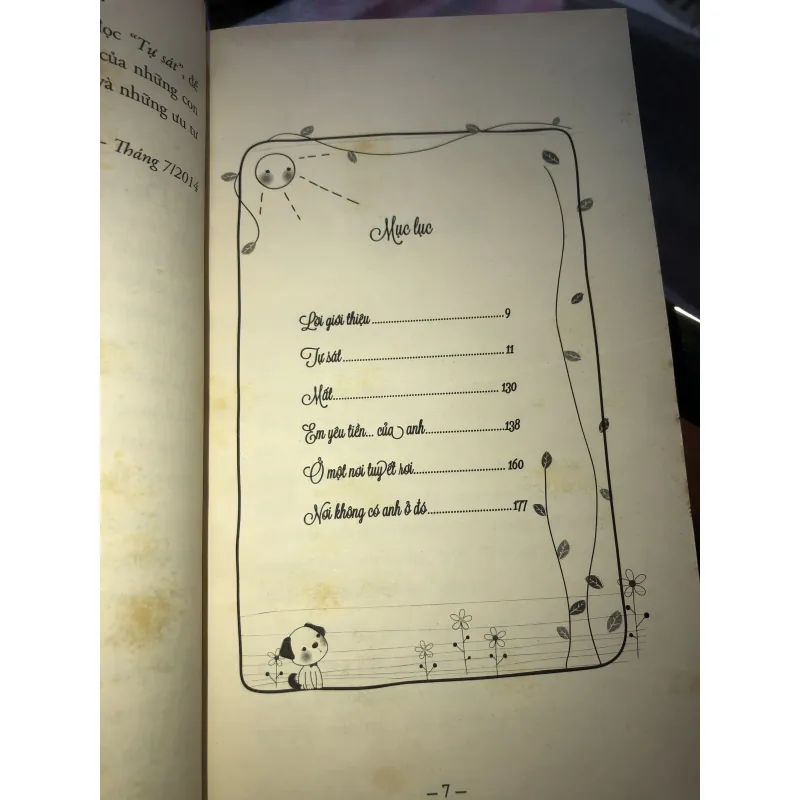 đọc “Tự sát”, để
của những con
và những ưu tư
– Tháng 7/2014
Mục lục
Lời giới thiệu.....................................................9
Tự sát................................................................11
Mất.................................................................. 130
Em yêu tiền... của anh................................138
Ở một nơi tuyết rơi..................................... 160
Nơi không có anh ở đó..................................177
– 7 –